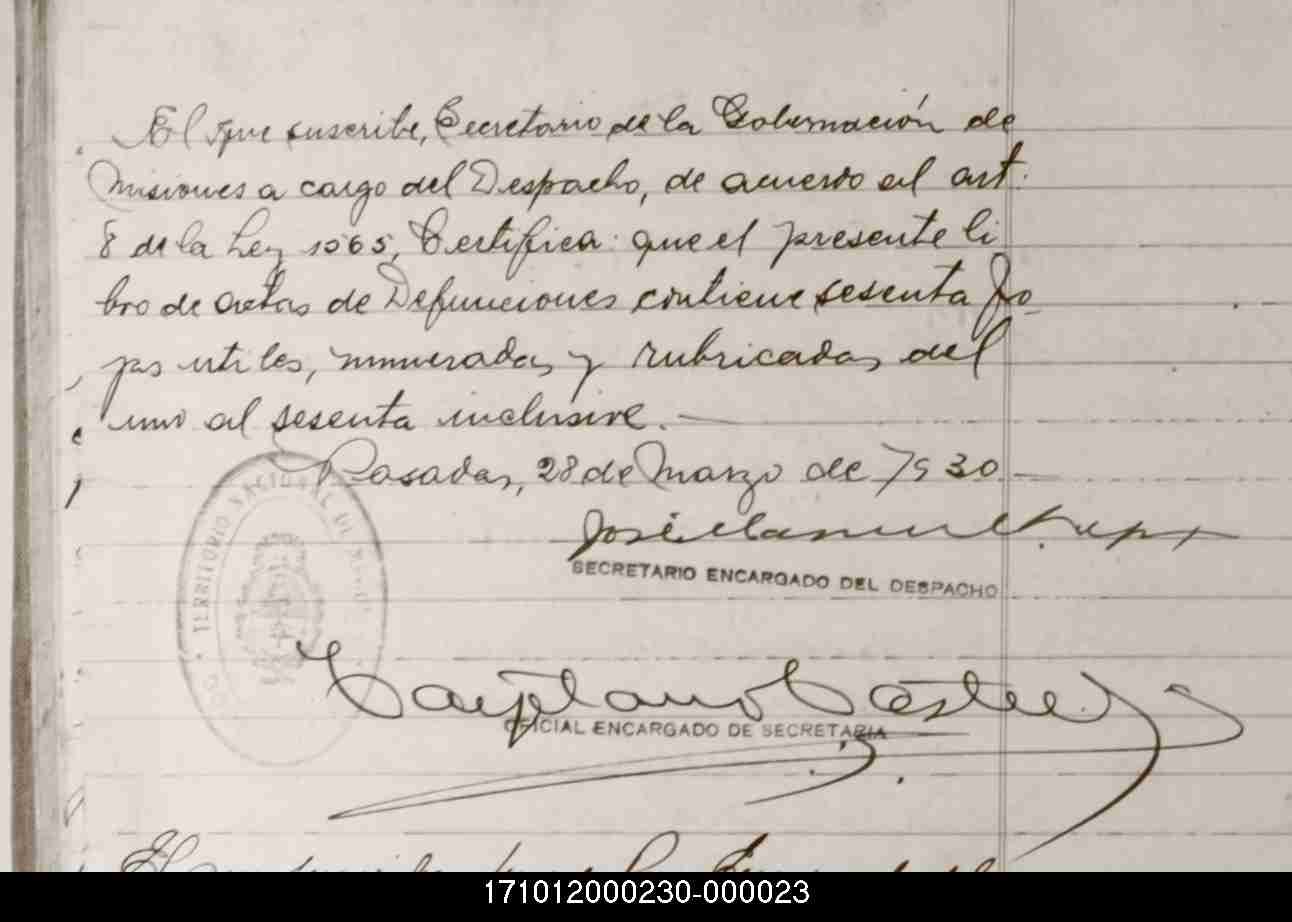 El que suscribe, Secretario de la Gobernación de
Misiones a cargo del Despacho, de acuerdo al art.
8 de la Ley 1565, Certifica: que el presente li
bro de actas de Defunciones contiene sesenta fo-
jas utiles, numeradas y rubricadas del
uno al sesenta inclusive.
Posadas, 28 de Marzo de 1930.
José
SECRETARIO ENCARGADO DEL DESPACHO
TERRITORIO NACIONAL DE
Cayetano
OFICIAL ENCARGADO DE SECRETARIA
171012000230-000023